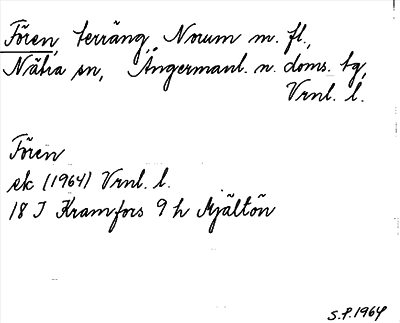 Fören, terräng, Norum m. fl.,
Nätra sn, Ångermanl. n. doms. tg,
Vrnl. l.
Fören
ek (1964) Vrnl. l.
18 I Kramfors 9 h Mjältön
S.P. 1964